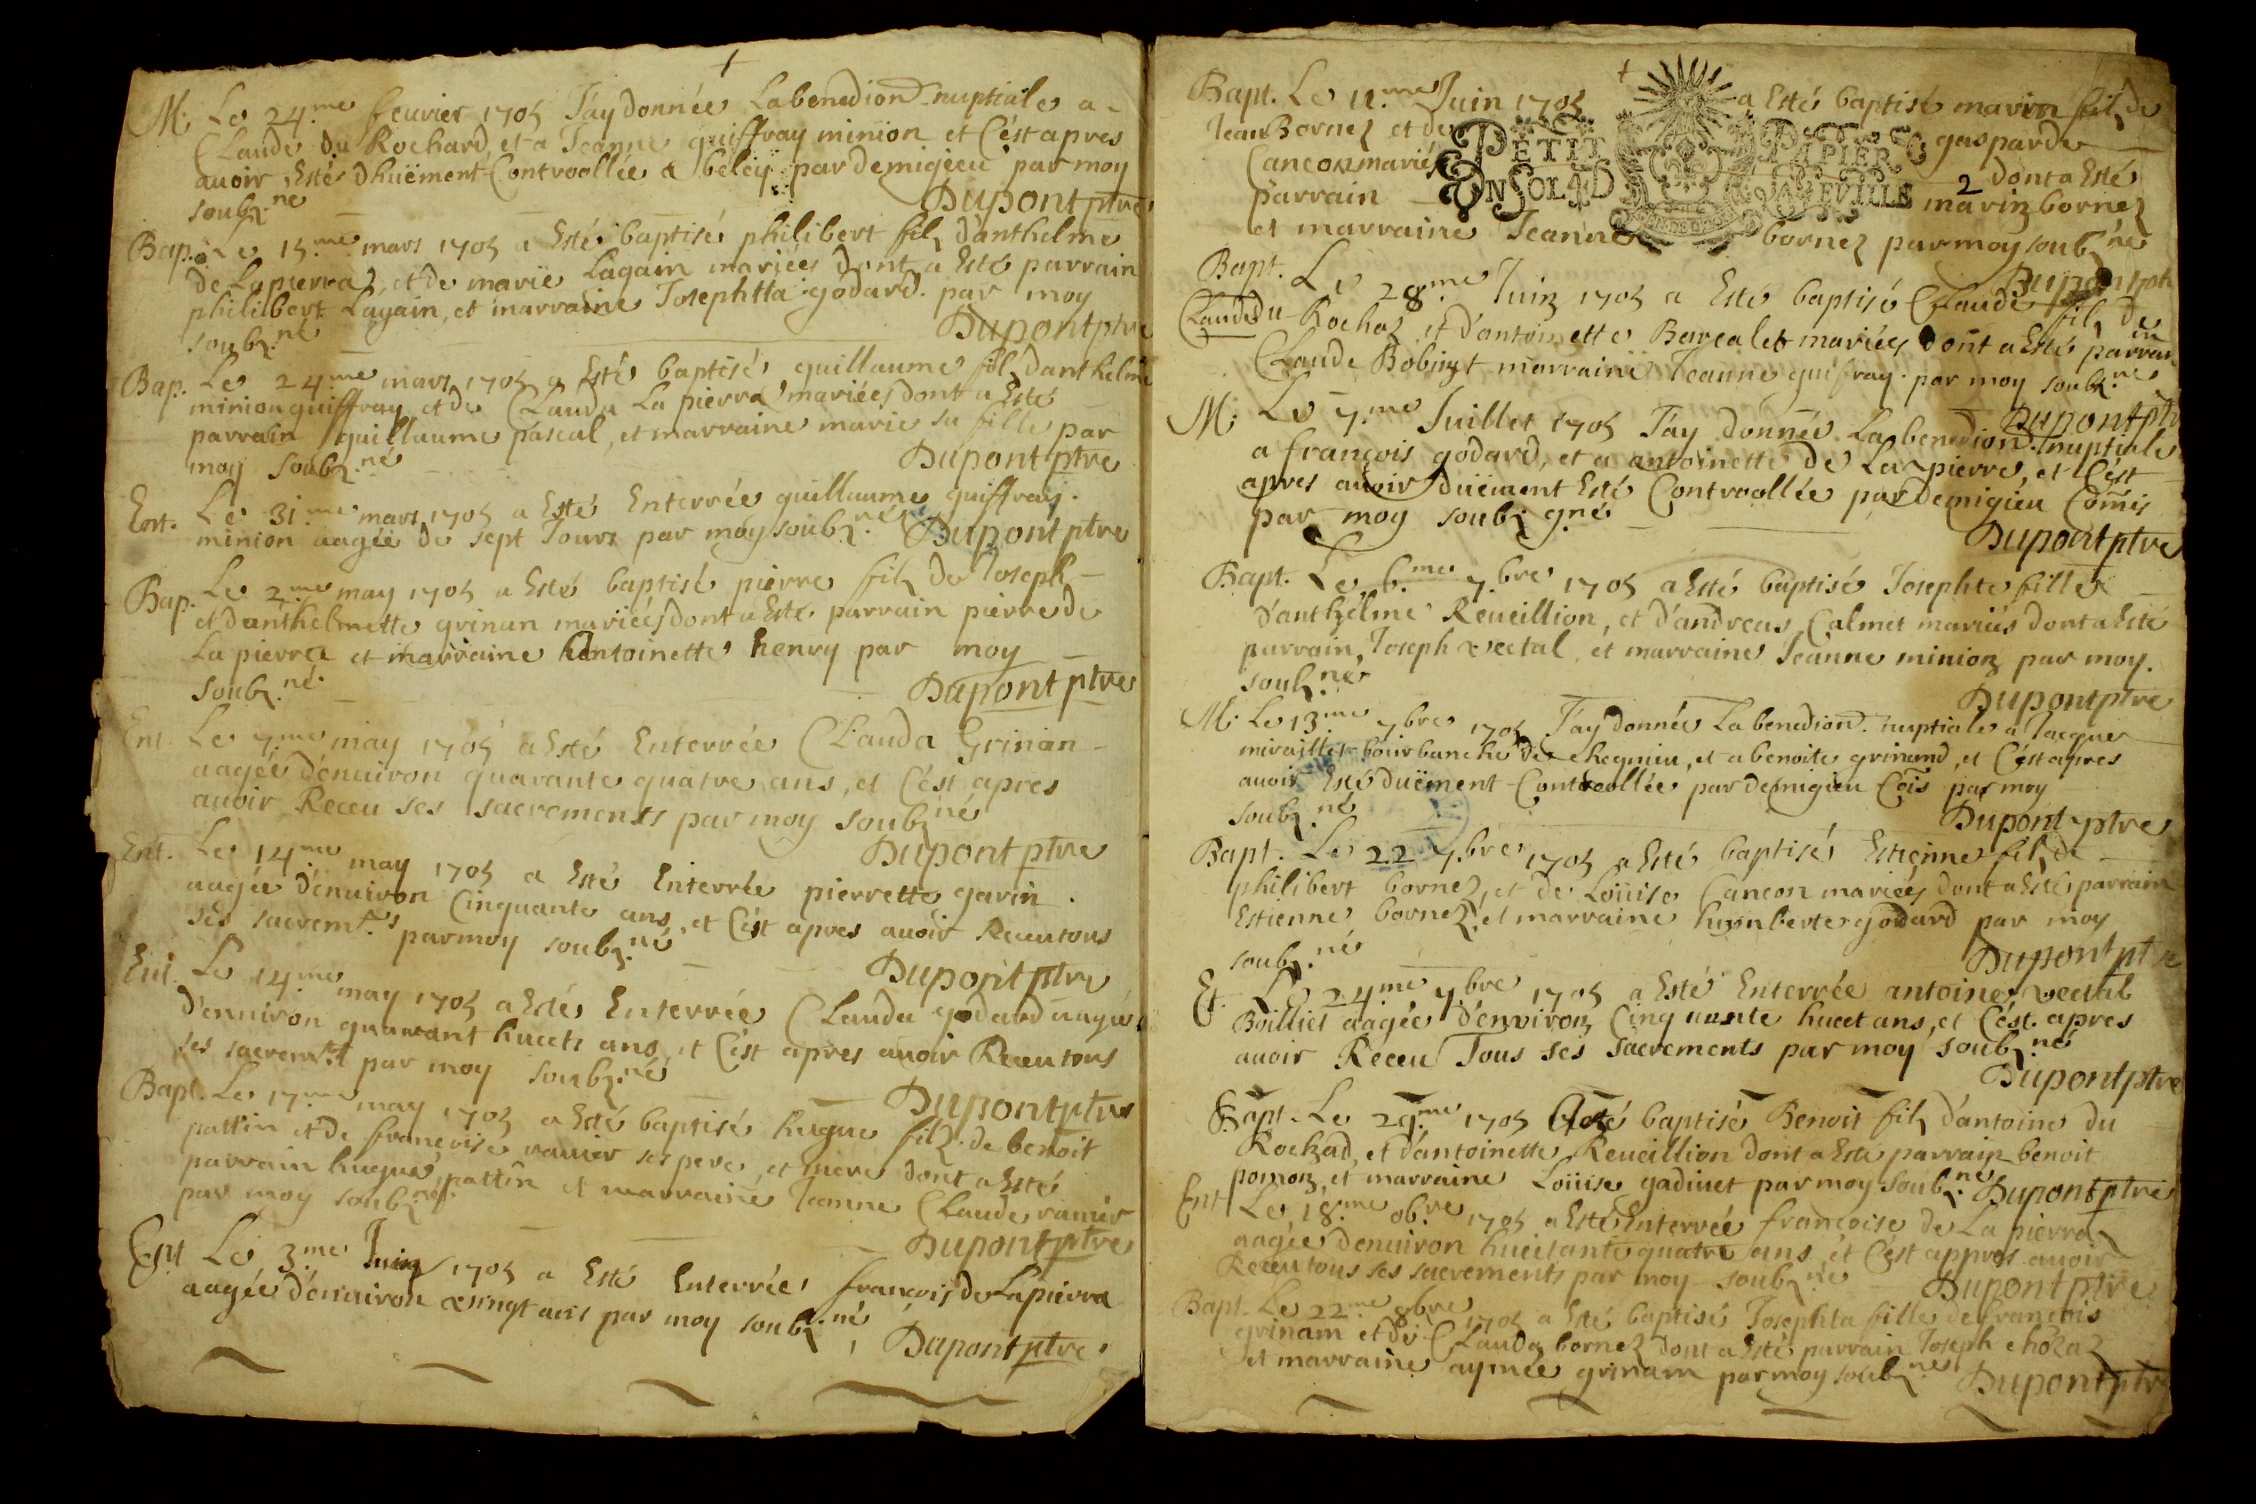 M. Le 24.me feurier 1705 J'ay donnée La benediōn nuptiale a
Claude du Rochard, et a Jeanne quiffray minion et C'ést apres
auoir Esté dhuëment Controollée a beley par demigieu par moy
soubz.né
Dupont ptre
Bap. Le 15.me mars 1705 a Esté baptisé philibert filz d'anthelme
de Lapierraz, et de marie Lagain mariées dont a Esté parrain
philibert Lagain, et marraine Josephtta godard. par moy
soubz.né
Dupont ptre
Bap. Le 24.me mars 1705 a Esté baptisé guillaume filz d'anthelme
minion quiffray et de Clauda La pierra mariées dont a Esté
parrain guillaume pascal, et marraine marie sa fille par
moy soubz.né
Dupont ptre
Ent. Le 31.me mars 1705 a Esté Enterrée guillaume quiffray.
minion aagée de sept Jours par moy soubz.né Dupont ptre
Bap. Le 2.me may 1705 a Esté baptisé pierre filz de Joseph
et d'anthelmette grinan mariées dont a Esté parrain pierre de
La pierra et marraine antoinette henry par moy
soubz.né
Dupont ptre
Ent. Le 7.me may 1705 a Esté Enterrée Clauda Grinan
aagée d'enuiron quarante quatre ans, et C'ést apres
auoir Receu ses sacrements par moy soubz.né
Dupont ptre
Ent. Le 14.me may 1705 a Esté Enterrée pierrette garin.
aagée d'enuiron Cinquante ans, et C'ést apres auoir Receu tous
ses sacrem.ts par moy soubz.né
Dupont ptre
Ent. Le 14.me may 1705 a Esté Enterrée Clauda godard aagée
d'enuiron quarant hueit ans, et C'ést apres auoir Receu tous
ses sacrem.t par moy soubz.né
Dupont ptre
Bapt. Le 17.me may 1705 a Esté baptisé hugue filz de benoit
pattin et de francoise ranier ses pere, et mere dont a Esté
parrain hugue pattin et marraine Jeanne Claude ranier
par moy soubz.né
Dupont ptre
Ent Le 3.me Juin 1705 a Esté Enterrée francois de Lapierra
aagée d'enuiron vingt ans par moy soubz.né
Dupont ptre
Bapt. Le 11.me Juin 1705 a Esté baptisé marin filz de
Jean Bornez et de gasparde
Cancon mariés 2 dont a Esté
parrain marin bornez
et marraine Jeanne bornez par moy soubz.né
PETIT PAPIER
UN SOL 4 D LA FEVILLE
Dupont ptre
Bapt. Le 28.me Juin 1705 a Esté baptisé Claude filz de
Claude du Rochaz et d'antoinette Barcalet mariées dont a Esté parrain
Claude Bobingt marraine Jeanne guifray par moy soubz.né
Dupont ptre
M. Le 7.me Juillet 1705 J'ay donnée La benediōn nuptiale
a françois godard, et a antoinette de La pierre, et C'ést
apres auoir duëment Esté Controollée par demigieu Com̄is
par moy soubz.gné
Dupont ptre
Bapt. Le 6.me 7.bre 1705 a Esté baptisé Josephte fille
d'anthelme Reueillion, et d'andreas Calmet mariés dont a Esté
parrain Joseph vectal et marraine Jeanne minion par moy.
soubz.né
Dupont ptre
M. Le 13.me 7bre 1705 J'ay donnée La benediōn nuptiale a Jacque
miraillet bourbanche de chegnieu, et a benoite grinand, et C'ést apres
auoir Esté duëment Controollée par demigieu Cōis par moy
soubz.né
Dupont ptre
Bapt. Le 22 7.bre 1705 a Esté baptisé Estienne filz de
philibert bornez, et de Loüise Cancon mariées dont a Esté parrain
Estienne bornez et marraine humberte godard par moy
soubz.né
Dupont ptre
Et. Le 24.me 7.bre 1705 a Esté Enterrée antoine vectal
Boilliet aagée d'environ Cinquante hueet ans, et C'ést apres
auoir Receu Tous ses sacrements par moy soubz.né
Dupont ptre
Bapt. Le 29.me 1705 a esté baptisé Benoit filz d'antoine du
Rochad, et d'antoinette Reueillion dont a Esté parrain benoit
pomoz, et marraine Loüise gadinet par moy soubz.né Dupont ptre
Ent Le 18.me 8b.re 1705 a Esté Enterrée françoise de La pierraz
aagée denuiron hueitante quatre ans et C'ést appres auoir
Receu tous ses sacrements par moy soubz.né Dupont ptre
Bapt. Le 22.me 8bre 1705 a Esté baptisé Josephta fille de francois
grinam et de Clauda bornez dont a Esté parrain Joseph chozaz
et marraine aymée grinam par moy soubz.né Dupont ptre